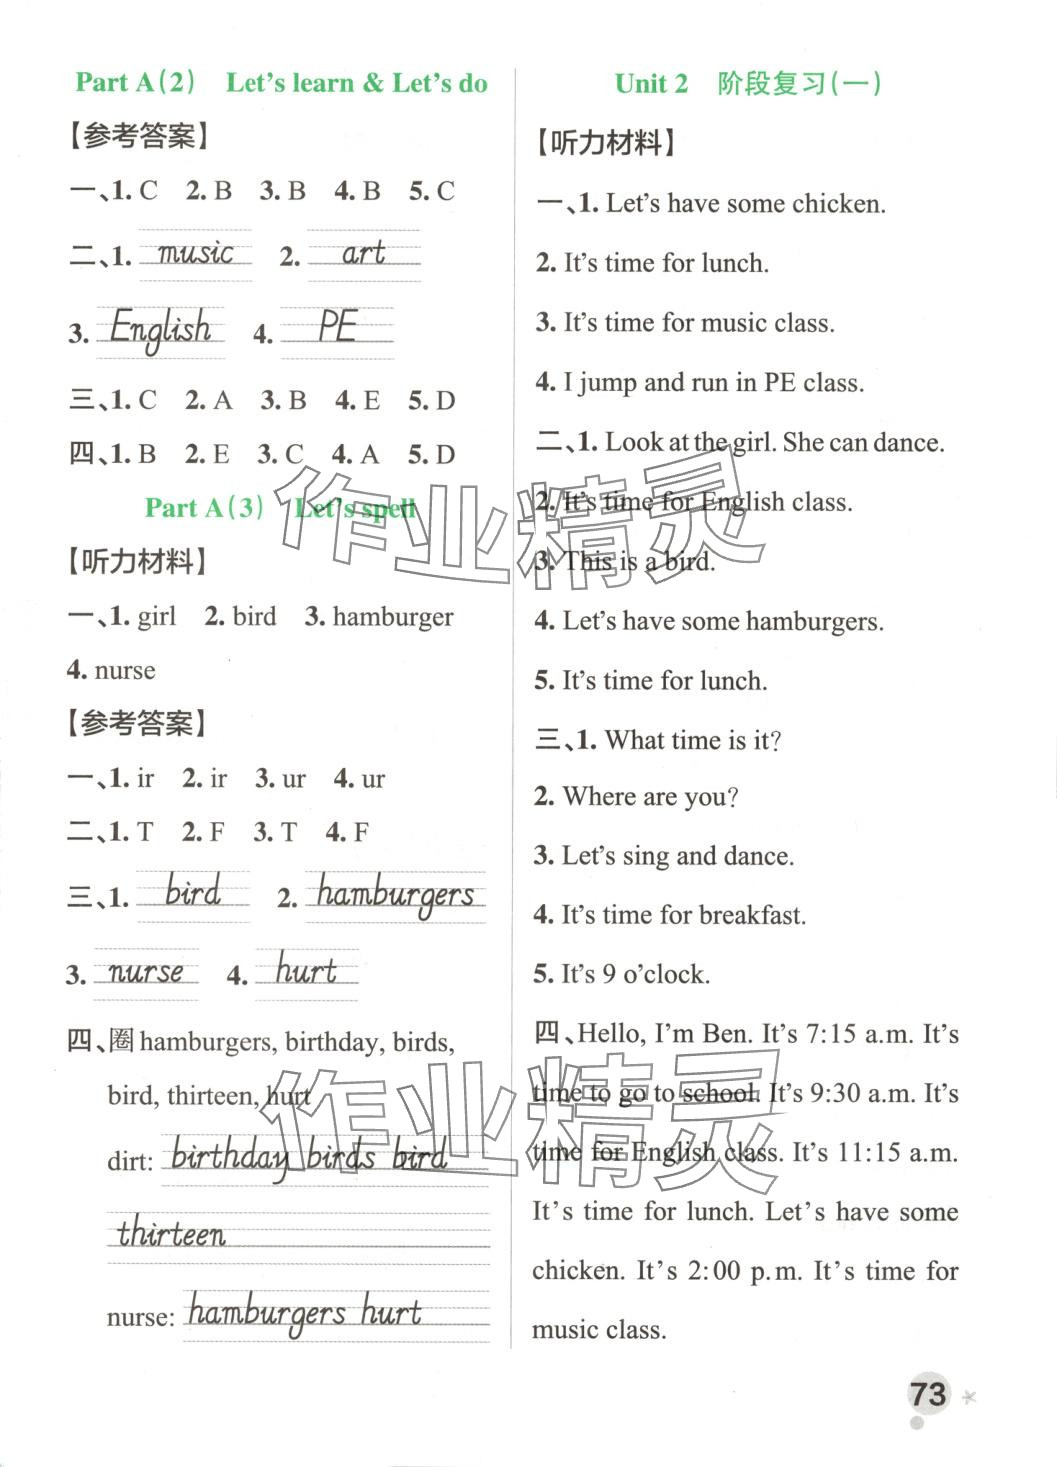 Part A(2) Let's learn & Let's do
【参考答案】
一、1. C 2. B 3. B 4. B 5. C
二、1. music 2. art
3. English 4. PE
三、1. C 2. A 3. B 4. E 5. D
四、1. B 2. E 3. C 4. A 5. D
Part A(3) Let's spell
【听力材料】
一、1. girl 2. bird 3. hamburger
4. nurse
【参考答案】
一、1. ir 2. ir 3. ur 4. ur
二、1. T 2. F 3. T 4. F
三、1. bird 2. hamburgers
3. nurse 4. hurt
四、圈 hamburgers, birthday, birds,
bird, thirteen, hurt
dirt: birthday birds bird
thirteen
nurse: hamburgers hurt
Unit 2 阶段复习(一)
【听力材料】
一、1. Let's have some chicken.
2. It's time for lunch.
3. It's time for music class.
4. I jump and run in PE class.
二、1. Look at the girl. She can dance.
2. It's time for English class.
3. This is a bird.
4. Let's have some hamburgers.
5. It's time for lunch.
三、1. What time is it?
2. Where are you?
3. Let's sing and dance.
4. It's time for breakfast.
5. It's 9 o'clock.
四、Hello, I'm Ben. It's 7:15 a.m. It's
time to go to school. It's 9:30 a.m. It's
time for English class. It's 11:15 a.m.
It's time for lunch. Let's have some
chicken. It's 2:00 p.m. It's time for
music class.
作业精灵
作业精灵
73